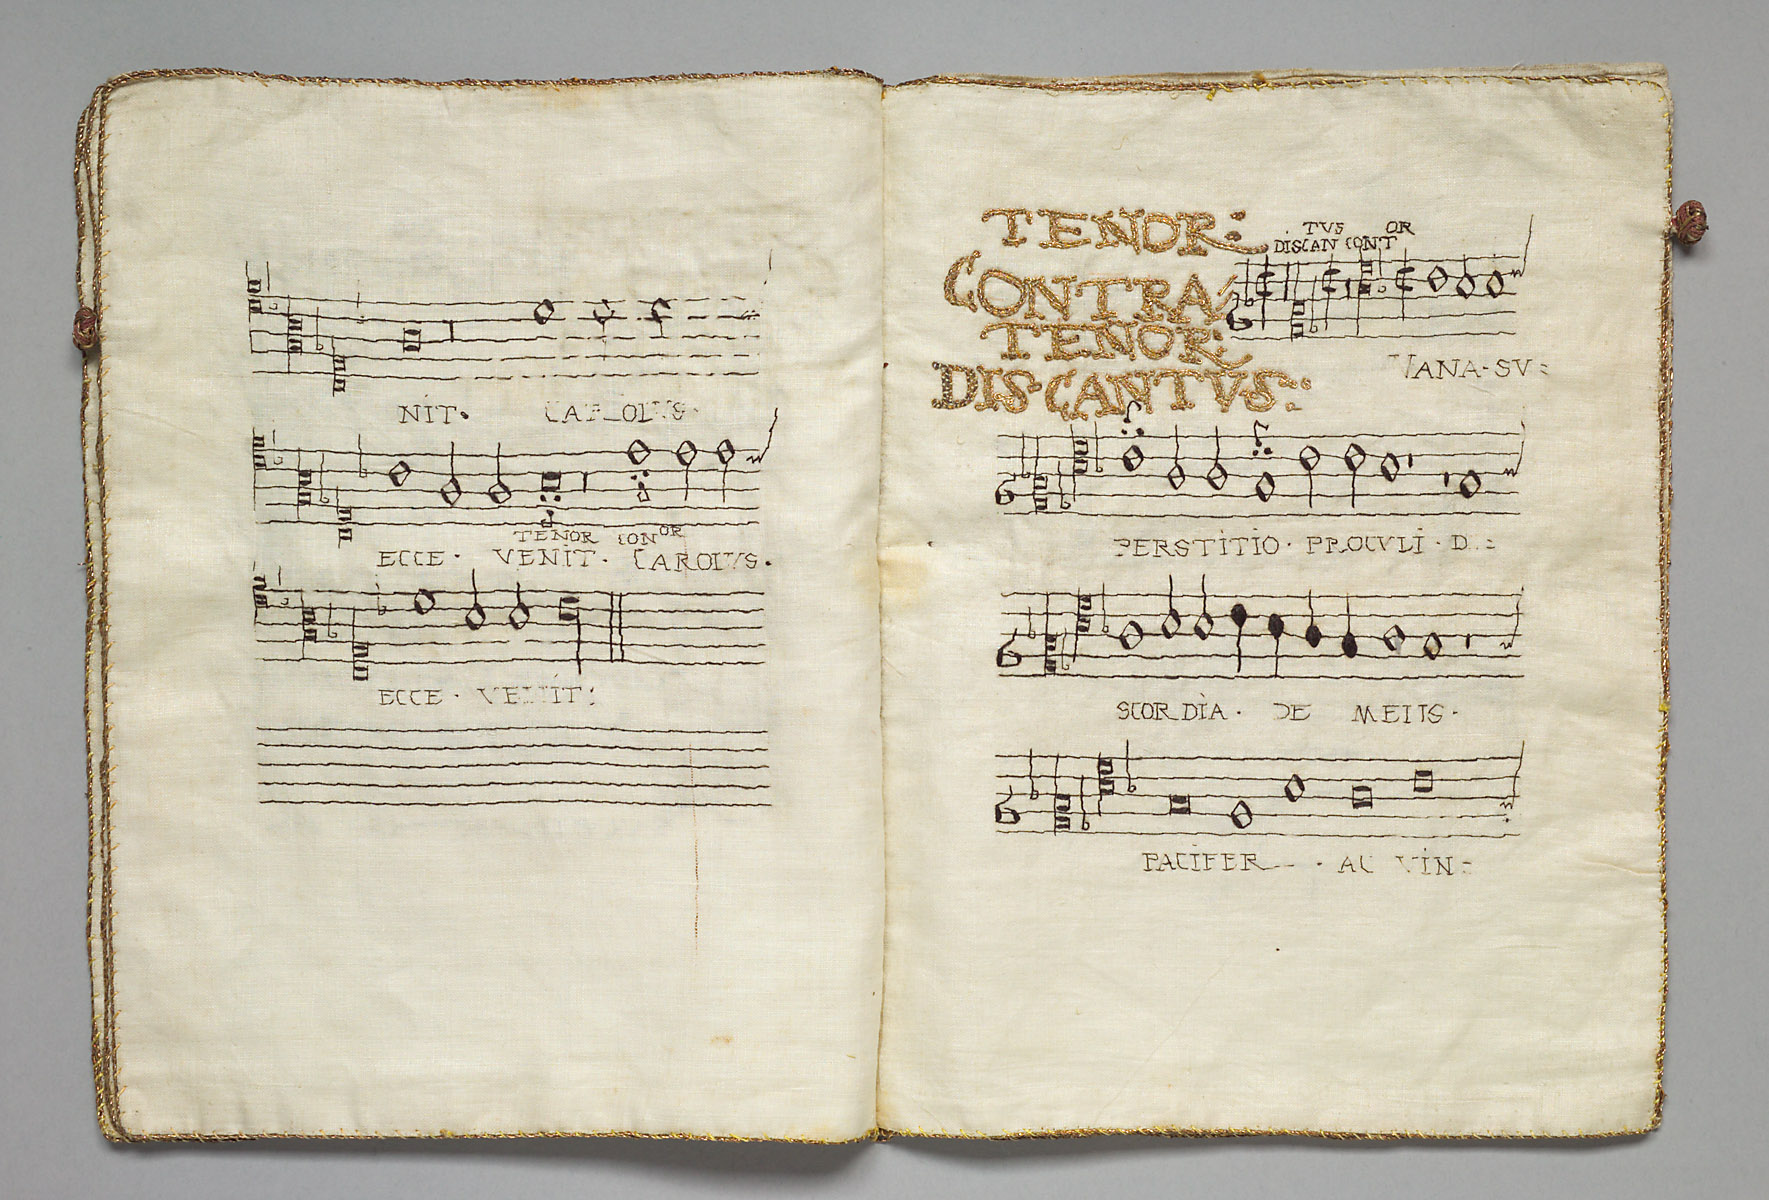 NIT. CAROLVS.
TENOR CONOR
ECCE · VENIT · CAROLVS.
ECCE · VENIT:
TENOR:
CONTRA
TENOR
DISCANTVS:
TVS OR
DISCAN CONT
VANA·SV:
PERSTITIO · PROCVLI · D:
SCORDIA · DE
PACIFER · AC VIN: